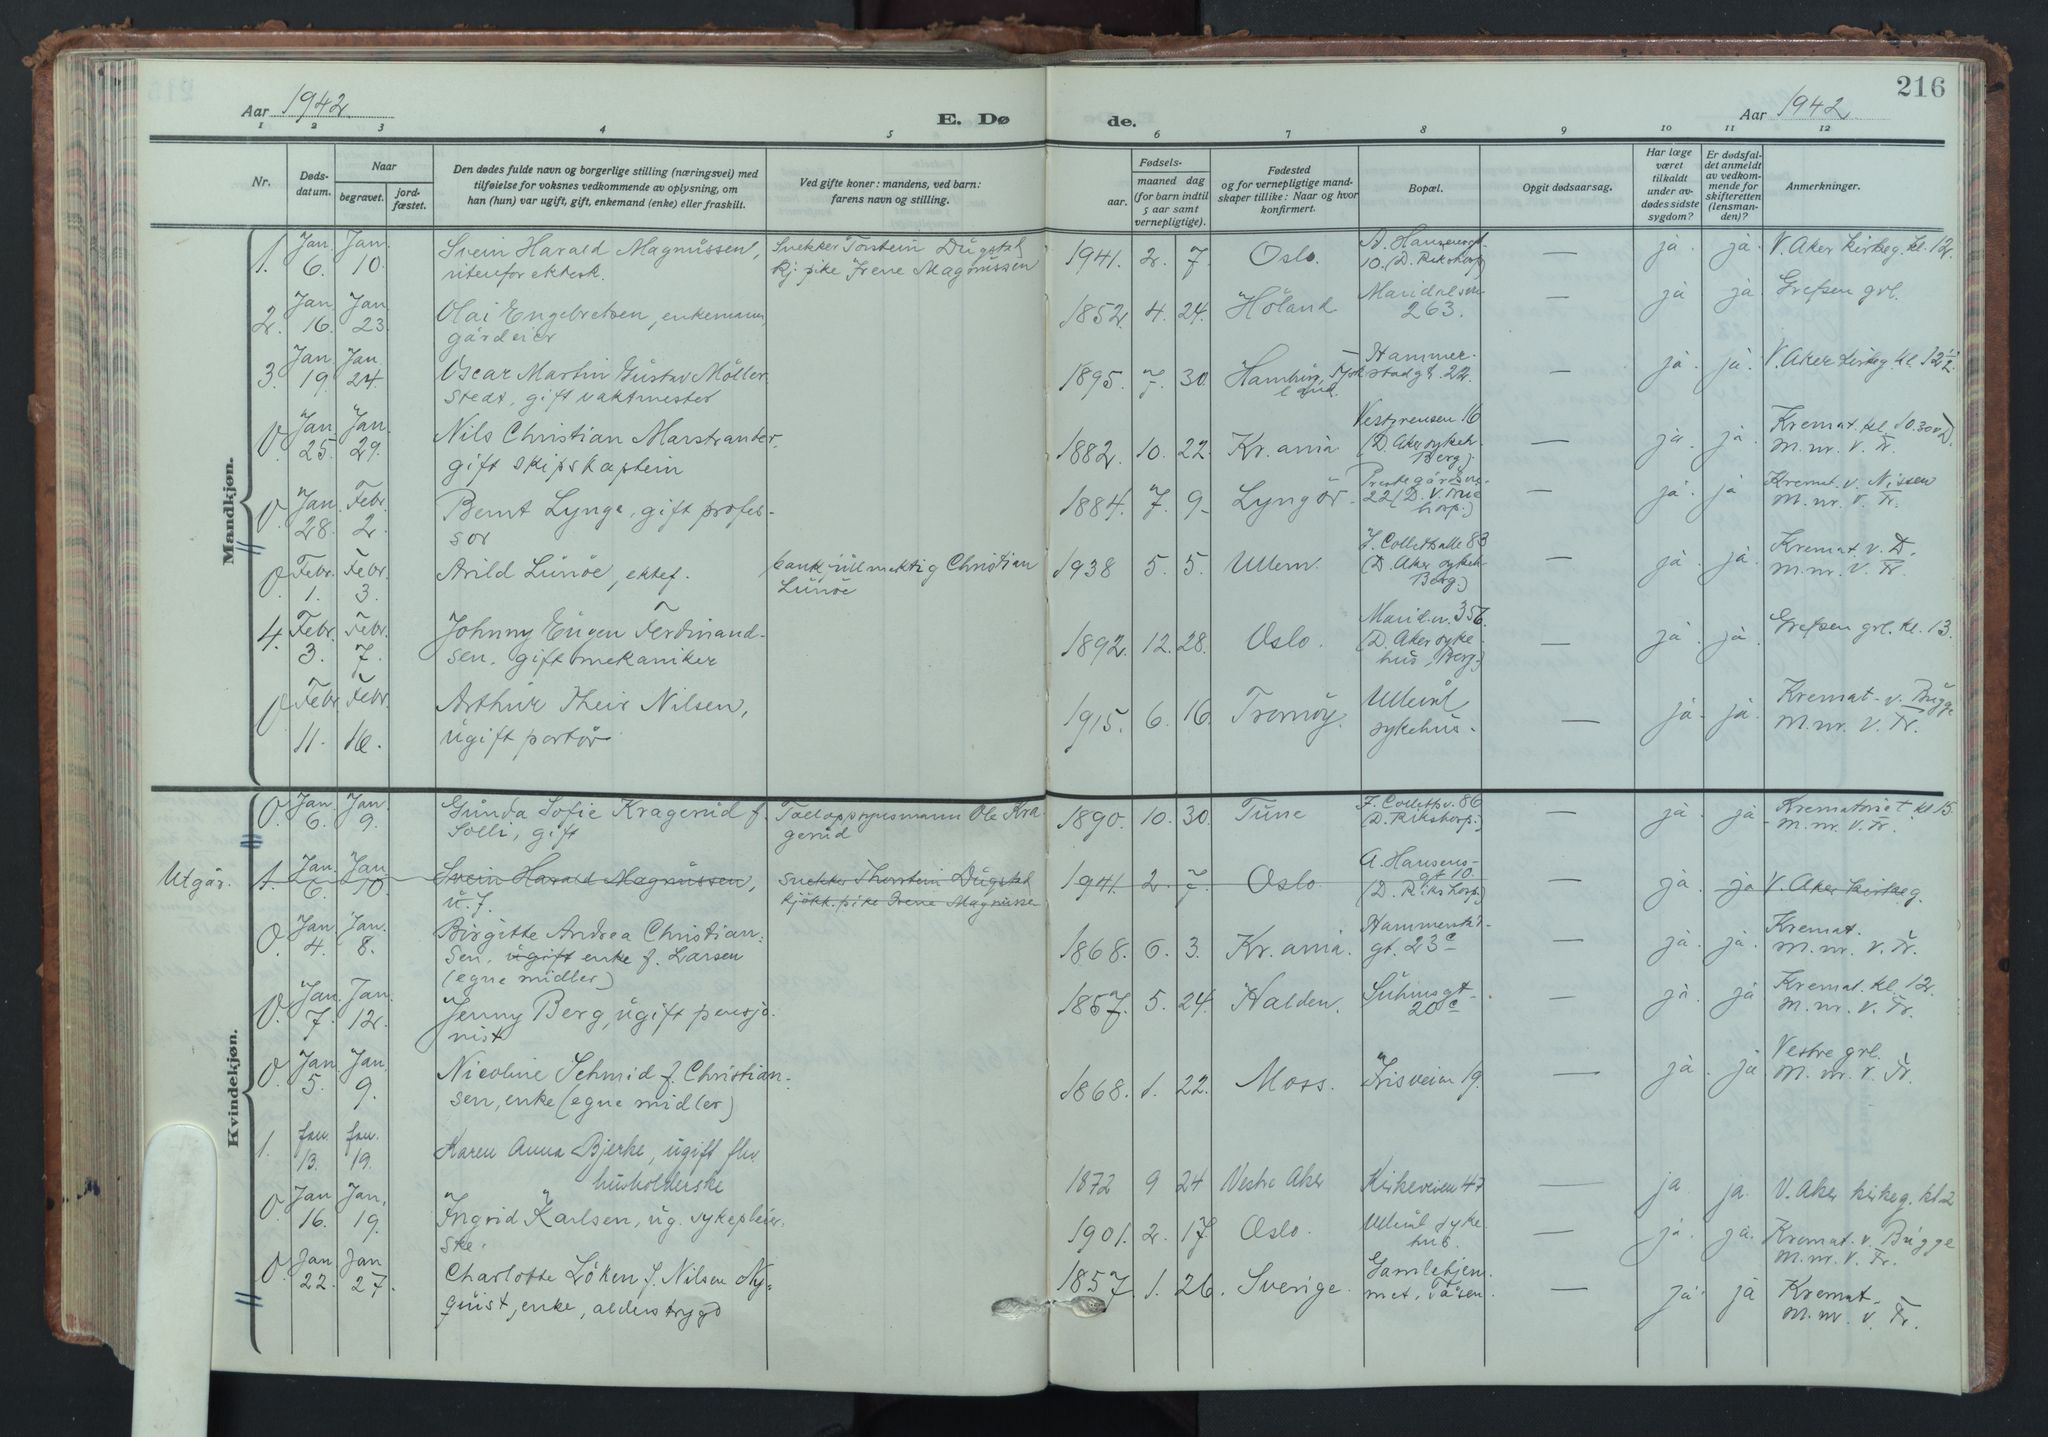 216
Aar 1942
E. Døde.
Aar 1942
1 2 3 4 5 6 7 8 9 10 11 12
Nr.
Døds-
datum.
Naar
begravet.
jord-
fæstet.
Den dødes fulde navn og borgerlige stilling (næringsvei) med
tilføielse for voksnes vedkommende av oplysning, om
han (hun) var ugift, gift, enkemand (enke) eller fraskilt.
Ved gifte koner: mandens, ved barn:
farens navn og stilling.
Fødsels-
aar.
maaned dag
(for barn indtil
5 aar samt
vernepligtige).
Fødested
og for vernepligtige mand-
skaper tillike: Naar og hvor
konfirmert.
Bopæl.
Opgit dødsaarsag.
Har læge
været
tilkaldt
under av-
dødes sidste
sygdom?
Er dødsfal-
det anmeldt
av vedkom-
mende for
skifteretten
(lensman-
den)?
Anmerkninger.
Mandkjøn.
1. Jan. 6. Jan. 10. Svein Harald Magnussen, Snekker Torstein Dugstad 1941. 2. 7. Oslo. A. Hansensgt. ja. ja. V. Aker kirkeg. kl. 12.
utenfor ektesk. kj. pike Irene Magnussen 10. (D. Rikshosp.) —
2. Jan. 16. Jan. 23. Olai Engebretsen, enkemann, 1852. 4. 24. Høland Maridalsvn. — ja ja Grefsen grl.
gårdeier 263.
3. Jan. 19. Jan. 24. Oscar Martin Gustav Möller- 1895. 7. 30. Hamburg, Tysk- Hammer- — ja. ja. V. Aker kirkeg. kl. 12 1/2
stedt, gift vaktmester land. stadgt. 22.
0. Jan. 25. Jan. 29. Nils Christian Marstrander. 1882. 10. 22. Kr.ania Vestgrensen 16 — ja. ja. Kremat. kl. 10.30 v. D.
gift skipskaptein (D. Aker sykeh. Berg.) M. nr. v. Fr.
0. Jan. 28. Febr. 2. Bernt Lynge, gift profes- 1884. 7. 9. Lyngør. Prestegårdsvn. — ja. ja Kremat. v. Nissen
sor 22 (D. V. Frue hosp.) M. nr. v. Fr.
0. Febr. 1. Febr. 3. Arild Lunöe, ektef. bankfullmektig Christian 1938 5. 5. Ullern. J. Colletsalle 83 — ja ja. Kremat. v. D.
Lunöe (D. Aker sykeh. Berg.) M. nr. v. Fr.
4. Febr. 3. Febr. 7. Johnny Eugen Ferdinand- 1892. 12. 28. Oslo. Marid.vn. 356. — ja. ja. Grefsen grl. kl. 13.
sen, gift mekaniker (D. Aker syke-
hus, Berg.)
0 Febr. 11. Febr. 16. Arthur Theis Nilsen, 1915. 6. 16. Tromøy. Ullevål — ja. ja. Kremat. v. Bugge
ugift portør sykehus. M. nr. v. Fr.
Kvindekjøn.
0. Jan. 6. Jan. 9. Gunda Sofie Kragerud f. Ole Kra- 1890. 10. 30. Tune J. Colletsv. 86 — ja. ja. Krematoriet kl. 15.
Solli, gift gerud (D. Rikshosp.) M. nr. v. Fr.
Utgår. 1. Jan. 6. Jan. 10. Svein Harald Magnussen, snekker Thorstein Dugstad 1941. 2. 7. Oslo. A. Hansens- ja. ja V. Aker kirkeg.
u. f. kjøkk. pike Irene Magnusse gt 10. (D. Rikshosp.)
0. Jan. 4. Jan. 8. Birgitte Andrea Christian- 1868. 6. 3. Kr.ania. Hammerstad- — ja. ja. Kremat.
sen, ugift enke f. Larsen gt. 23 c M. nr. v. Fr.
(egne midler)
0. Jan. 7. Jan. 12. Jenny Berg, ugift pensjo- 1857. 5. 24. Halden. Suhmsgt. — ja. ja Kremat. kl. 12.
nist 20 c M. nr. v. Fr.
0. Jan. 5. Jan. 9. Nicoline Schmid f. Christian- 1868. 1. 22. Moss. Irisveien 19. — ja. ja Vestre grl.
sen, enke (egne midler) M. nr. v. Fr.
1. Jan. 13. Jan. 19. Karen Anna Bjerke, ugift fhv.
husholderske 1872 9 24 Vestre Aker Kirkeveien 47 — ja ja. V. Aker kirkeg. kl 2
0. Jan. 16. Jan. 19. Ingrid Karlsen, ug. sykepleier- 1901. 2. 17. Oslo. Ullevål syke- — ja ja. Kremat. v. Bugge
ske. hus. M. nr. v. Fr.
0. Jan. 22. Jan. 27. Charlotte Löken f. Nilsen Ny- 1857. 1. 26. Sverige. Gamlehjem- — ja. ja Kremat.
quist, enke, alderstrygd met, Tåsen. M. nr. v. Fr.